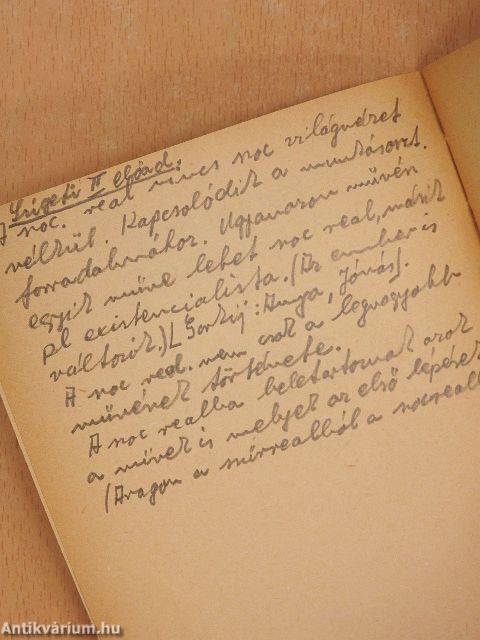 Szigeti II előad:
A soc. real nincs soc világnézet
nélkül. Kapcsolódik a munkásoszt.
forradalmához. Ugyanazon művén
egyik műve lehet soc real, másik
pl existencialista. (Az ember is
változik.) [Gorkij: Anya, Jónás].
A soc real. nem csak a legnagyobb
művének története.
A soc realba beletartoznak azok
a művek is melyek az első lépések
(Aragon a szürreálból a socreal
Antikvárium.hu